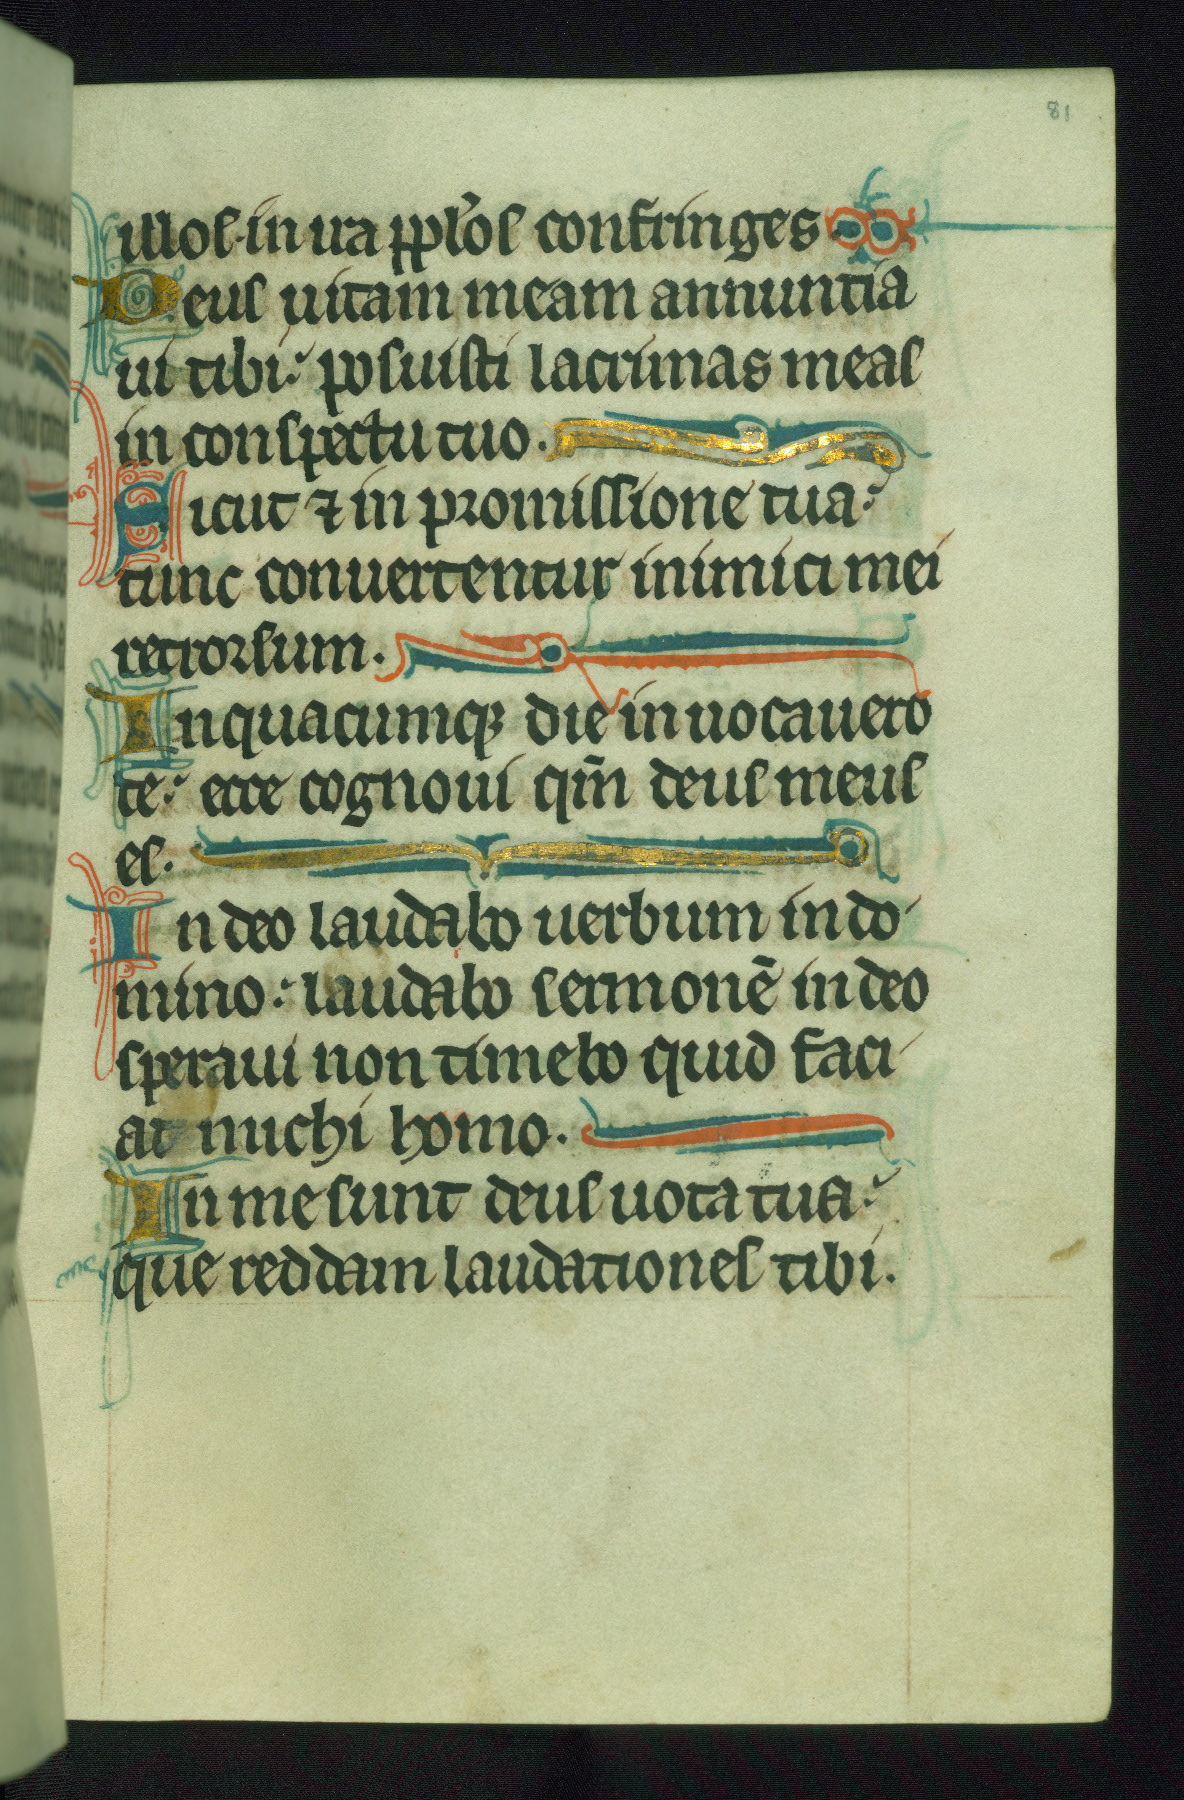 81
illos· in ira pplos confringes.
Deus uitam meam annuntia
ui tibi: posuisti lacrimas meas
in conspectu tuo.
Sicut ⁊ in promissione tua:
tunc conuertentur inimici mei
retrorsum.
In quacumqꝫ die inuocauero
te: ecce cognoui qm̄ deus meus
es.
In deo laudabo uerbum in do
mino: laudabo sermonē in deo
speraui non timebo quid faci
at michi homo.
In me sunt deus uota tua:
que reddam laudationes tibi.